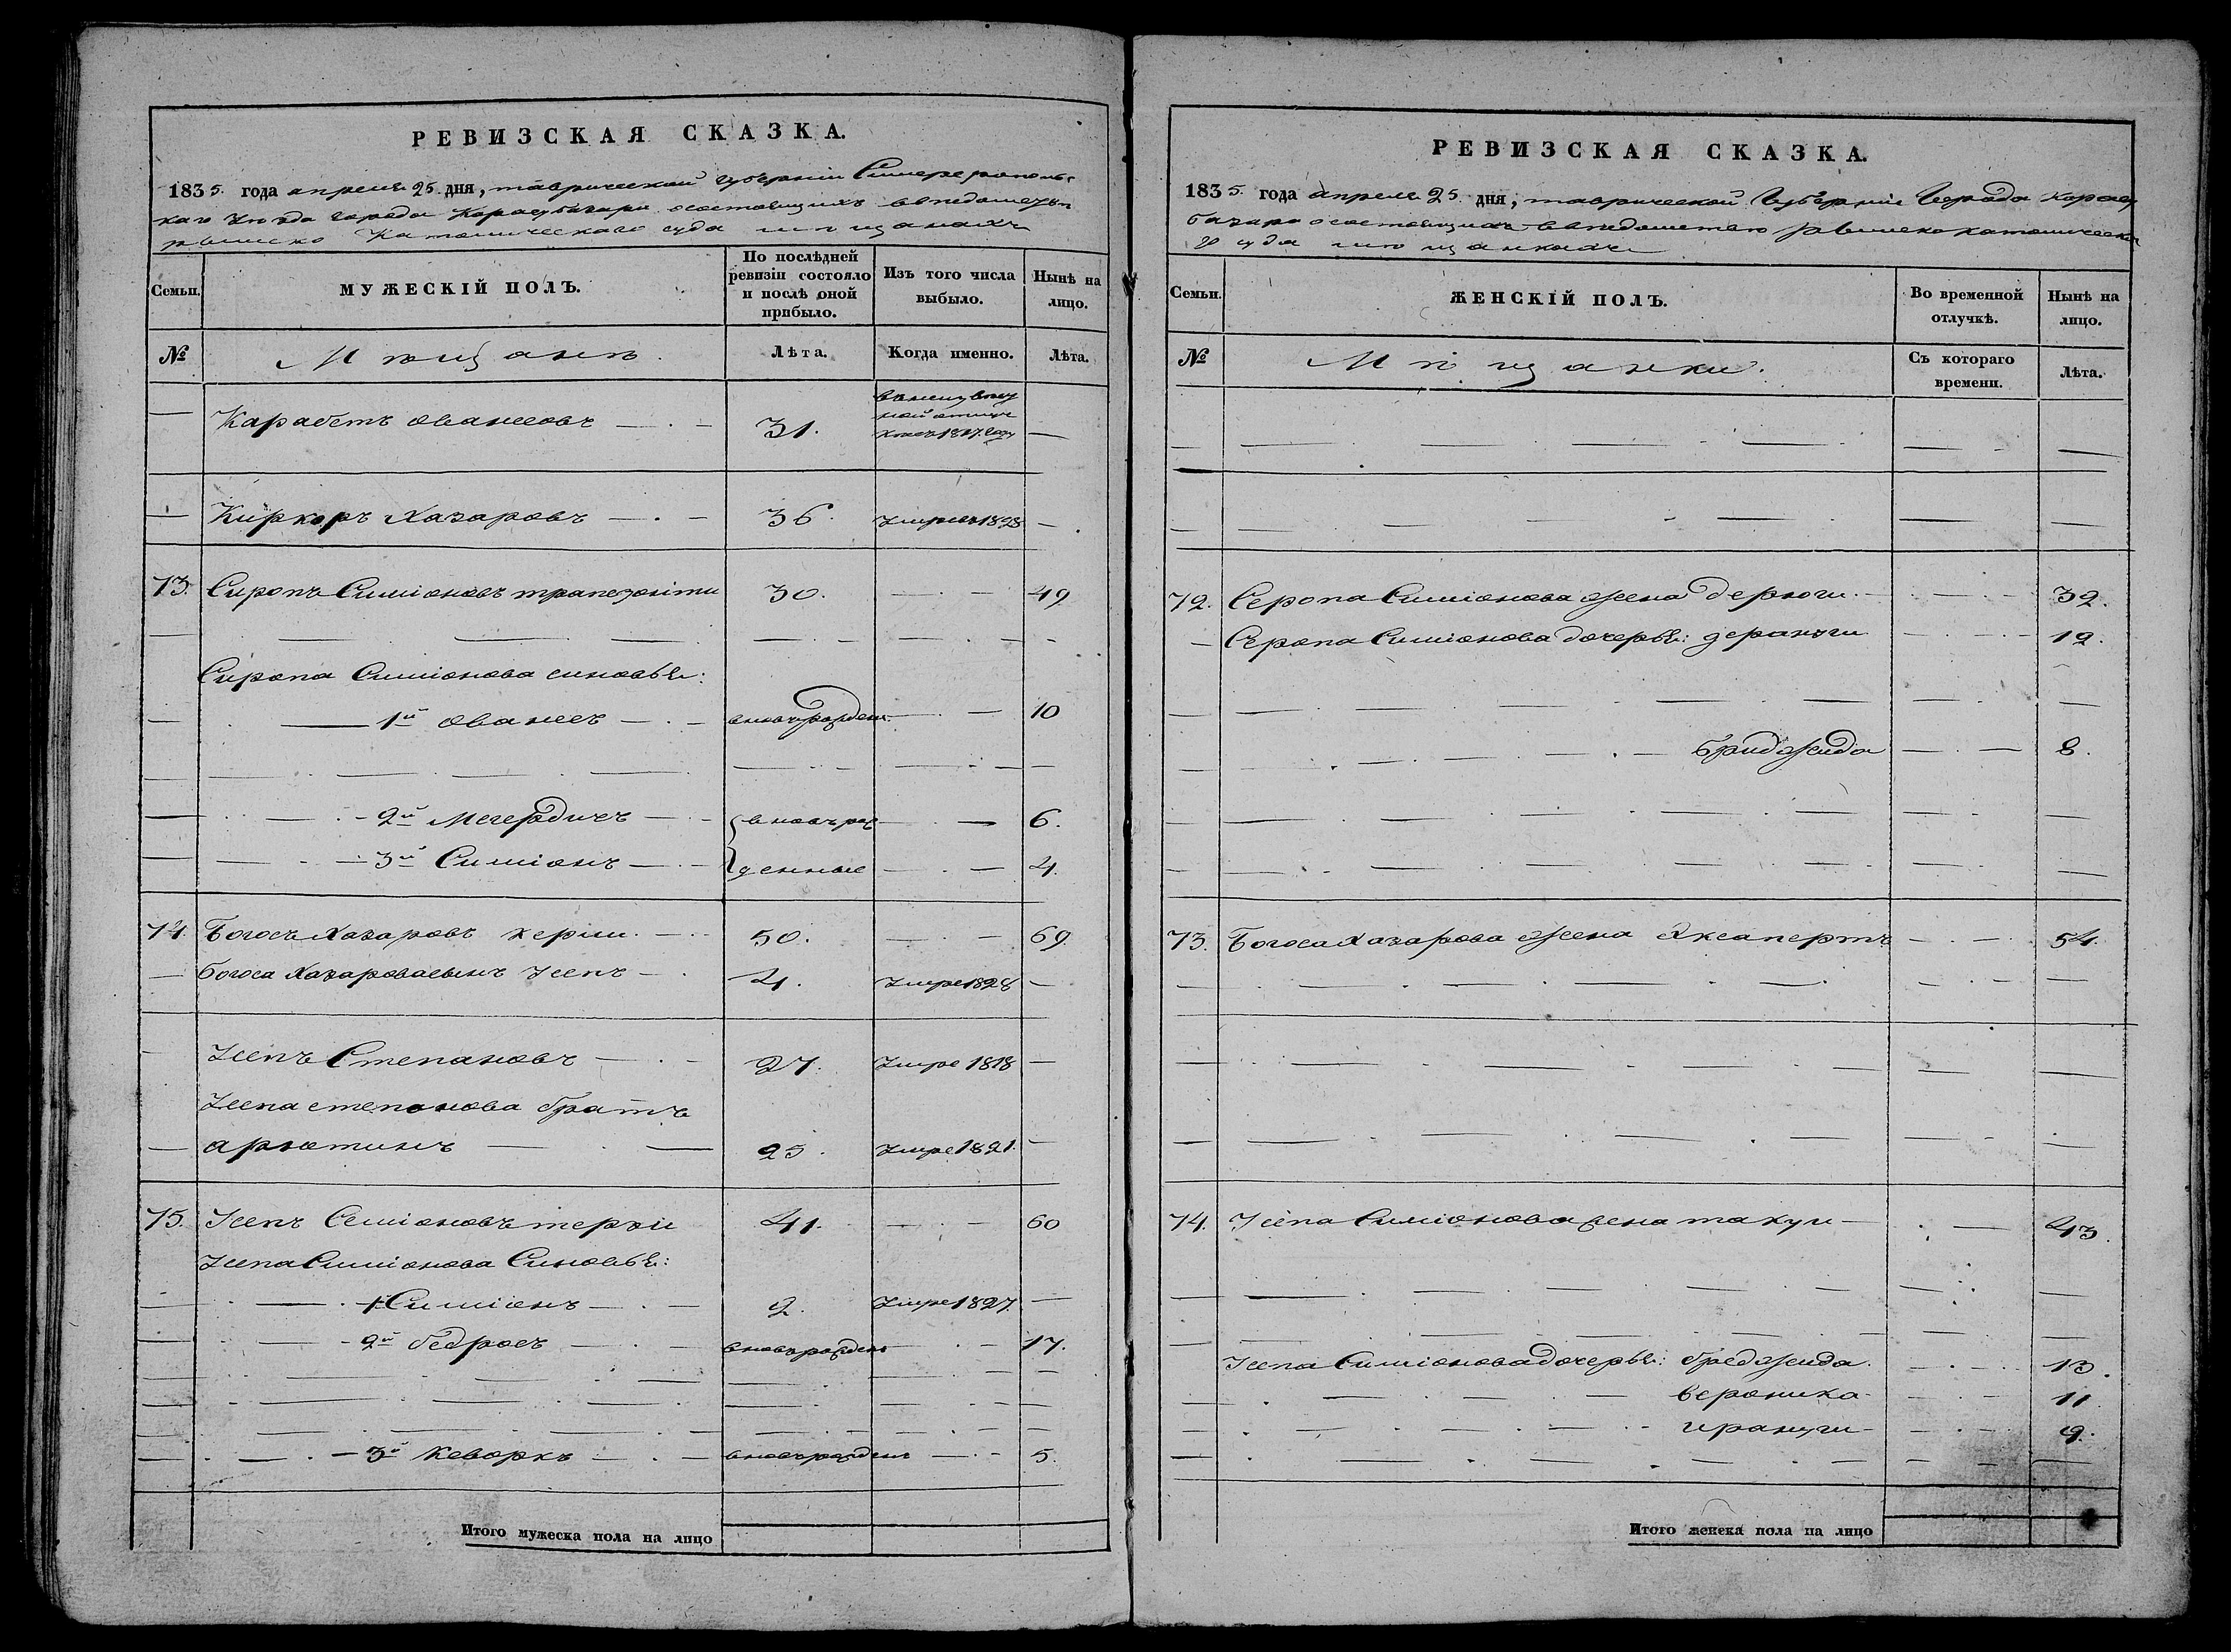 РЕВИЗСКАЯ СКАЗКА.
1835. года апреля 25. дня, таврической губернии Симферополь-
каго уезда города Карасубазара осостоящихъ введомстве
римско Католическаго суда мещанахъ
Семьи.
МУЖЕСКІЙ ПОЛЪ.
По послѣдней ревизіи состояло и послѣ оной прибыло.
Изъ того числа выбыло.
Нынѣ на лицо.
№
Мещане.
Лѣта.
Когда именно.
Лѣта.
— Карабетъ Ованесовъ — 31. 1817. году —
— Киркоръ Хазаровъ — 36. Умре въ 1828 —
73. Сиропъ Симіоновъ трапезонти 30. — 49
Сиропа Симіонова синовья:
— 1й Ованесъ — вновьрожден. — 10
— 2й Мегердичъ — вновь рож — 6.
— 3й Симіонъ — денные — 4.
74. Богосъ Хазаровъ херіи. — 50. — 69.
— Богоса Хазарова сынъ Усепъ — 4. Умре 1828 —
— Усепъ Степановъ — 27. Умре 1818 —
Усепа степанова братъ
— арютинъ — 25. Умре 1821. —
75. Усепъ Семіоновъ терзіи 41. — 60
Усепа Симіонова Синовья:
— 1й Симіонъ — 2. Умре 1827. —
— 2й бедросъ — вновьрожден — 17.
— 3й Кеворкъ — вновьрожден — 5.
Итого мужеска пола на лицо
РЕВИЗСКАЯ СКАЗКА.
1835. года апреля 25. дня, таврической Губерніи Города Карасу
базара осостоящихъ введомстве римско католическа
го суда мещанкахъ
Семьи.
ЖЕНСКІЙ ПОЛЪ.
Во временной отлучкѣ.
Нынѣ на лицо.
№
Мещанки.
Съ котораго времени.
Лѣта.
72. Серопа Симіонова жена дерюги. — 32.
— Серопа Симіонова дочерья: зеранъги — 12.
— бриджида — 8.
73. Богоса Хазарова жена Яксаперть — 54.
74. Усепа Симіонова жена такуги — 43.
Усепа Симіонова дочерья: бреджида. — 13.
— вероника — 11
— ирануги — 9.
Итого женска пола на лицо